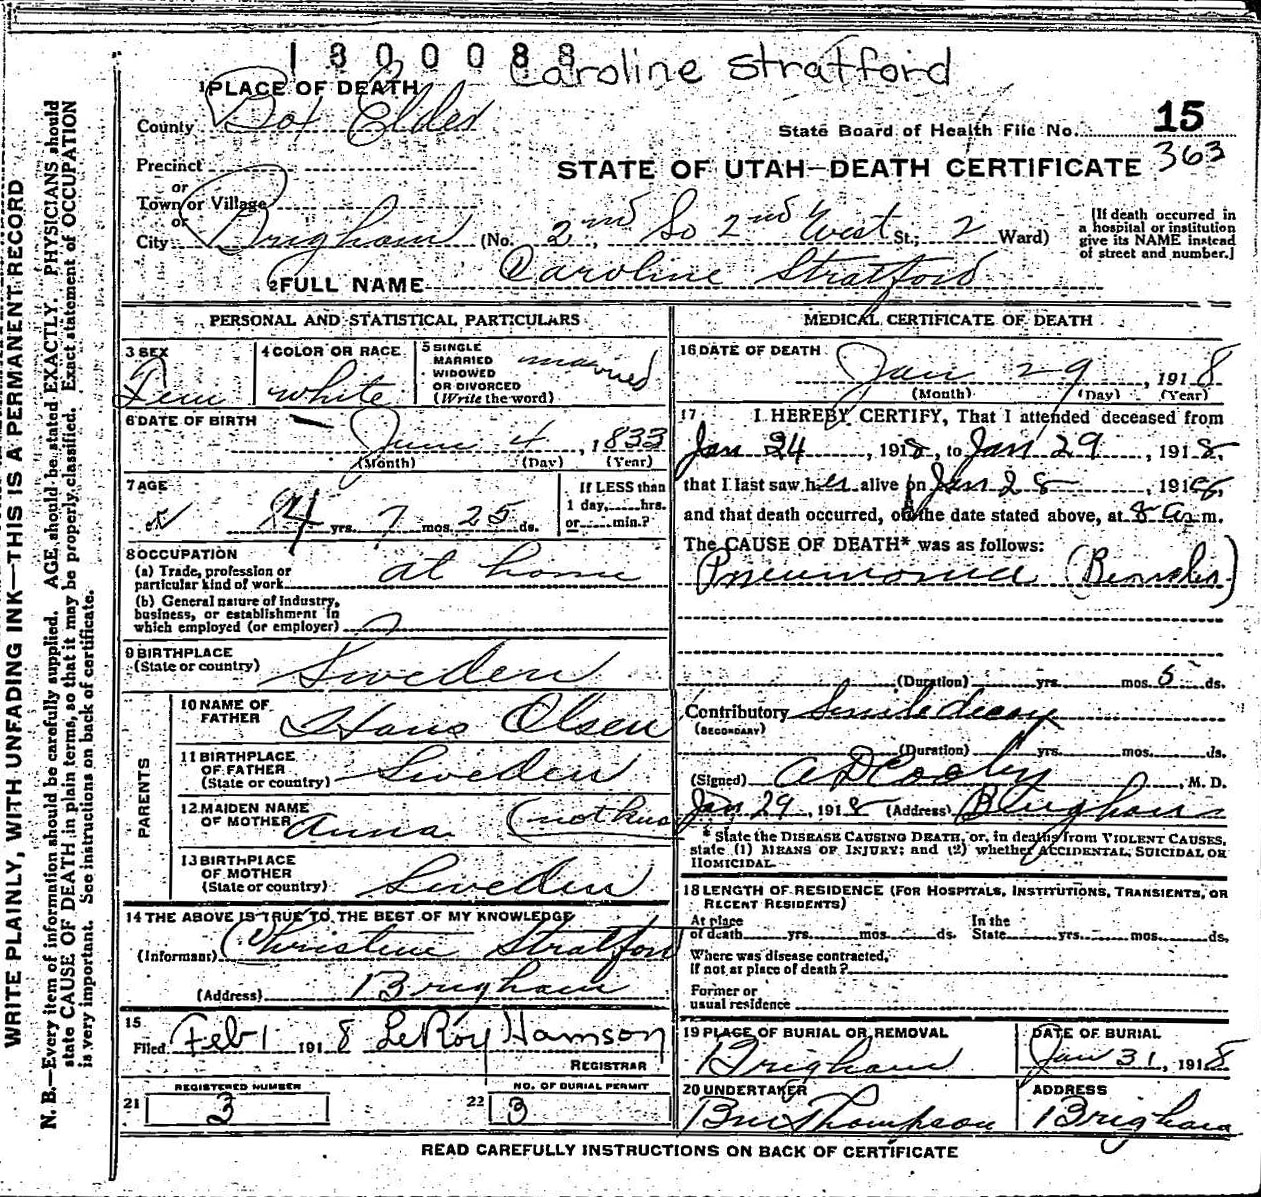 1800088 Caroline Stratford
1 PLACE OF DEATH
County Box Elder
State Board of Health File No. 15
363
Precinct
or
Town or Village
or
STATE OF UTAH—DEATH CERTIFICATE
City Brigham (No. 2nd So 2nd West St.; 2 Ward)
[If death occurred in
a hospital or institution
give its NAME instead
of street and number.]
2 FULL NAME Caroline Stratford
PERSONAL AND STATISTICAL PARTICULARS
3 SEX
Fem
4 COLOR OR RACE
white
5 SINGLE
MARRIED
WIDOWED
OR DIVORCED
(Write the word)
married
6 DATE OF BIRTH
June 4, 1833
(Month) (Day) (Year)
7 AGE
84 yrs. 7 mos. 25 ds.
If LESS than
1 day,......hrs.
or......min.?
8 OCCUPATION
(a) Trade, profession or
particular kind of work at home
(b) General nature of industry,
business, or establishment in
which employed (or employer)
9 BIRTHPLACE
(State or country) Sweden
PARENTS
10 NAME OF
FATHER Hans Olsen
11 BIRTHPLACE
OF FATHER
(State or country) Sweden
12 MAIDEN NAME
OF MOTHER Anna
13 BIRTHPLACE
OF MOTHER
(State or country) Sweden
14 THE ABOVE IS TRUE TO THE BEST OF MY KNOWLEDGE
(Informant) Christine Stratford
(Address) Brigham
15
Filed Feb 1 1918 LeRoy Hamson
REGISTRAR
REGISTERED NUMBER
21 3
NO. OF BURIAL PERMIT
22 3
MEDICAL CERTIFICATE OF DEATH
16 DATE OF DEATH
Jan 29, 1918
(Month) (Day) (Year)
17 I HEREBY CERTIFY, That I attended deceased from
Jan 24, 1918, to Jan 29, 1918.
that I last saw her alive on Jan 28, 1918,
and that death occurred, on the date stated above, at 8 a.m.
The CAUSE OF DEATH* was as follows:
Pneumonia
(Duration) yrs. mos. 5 ds.
Contributory Senile decay
(SECONDARY)
(Duration) yrs. mos. ds.
(Signed) A D Cooley, M. D.
Jan 29, 1918 (Address) Brigham
* State the DISEASE CAUSING DEATH, or, in deaths from VIOLENT CAUSES,
state (1) MEANS OF INJURY; and (2) whether ACCIDENTAL, SUICIDAL OR
HOMICIDAL.
18 LENGTH OF RESIDENCE (FOR HOSPITALS, INSTITUTIONS, TRANSIENTS, OR
RECENT RESIDENTS)
At place
of death yrs. mos. ds.
In the
State yrs. mos. ds.
Where was disease contracted,
If not at place of death?
Former or
usual residence
19 PLACE OF BURIAL OR REMOVAL
Brigham
DATE OF BURIAL
Jan 31, 1918
20 UNDERTAKER
Thompson
ADDRESS
Brigham
READ CAREFULLY INSTRUCTIONS ON BACK OF CERTIFICATE
WRITE PLAINLY, WITH UNFADING INK—THIS IS A PERMANENT RECORD
N. B.—Every item of information should be carefully supplied. AGE should be stated EXACTLY. PHYSICIANS should
state CAUSE OF DEATH in plain terms, so that it may be properly classified. Exact statement of OCCUPATION
is very important. See instructions on back of certificate.